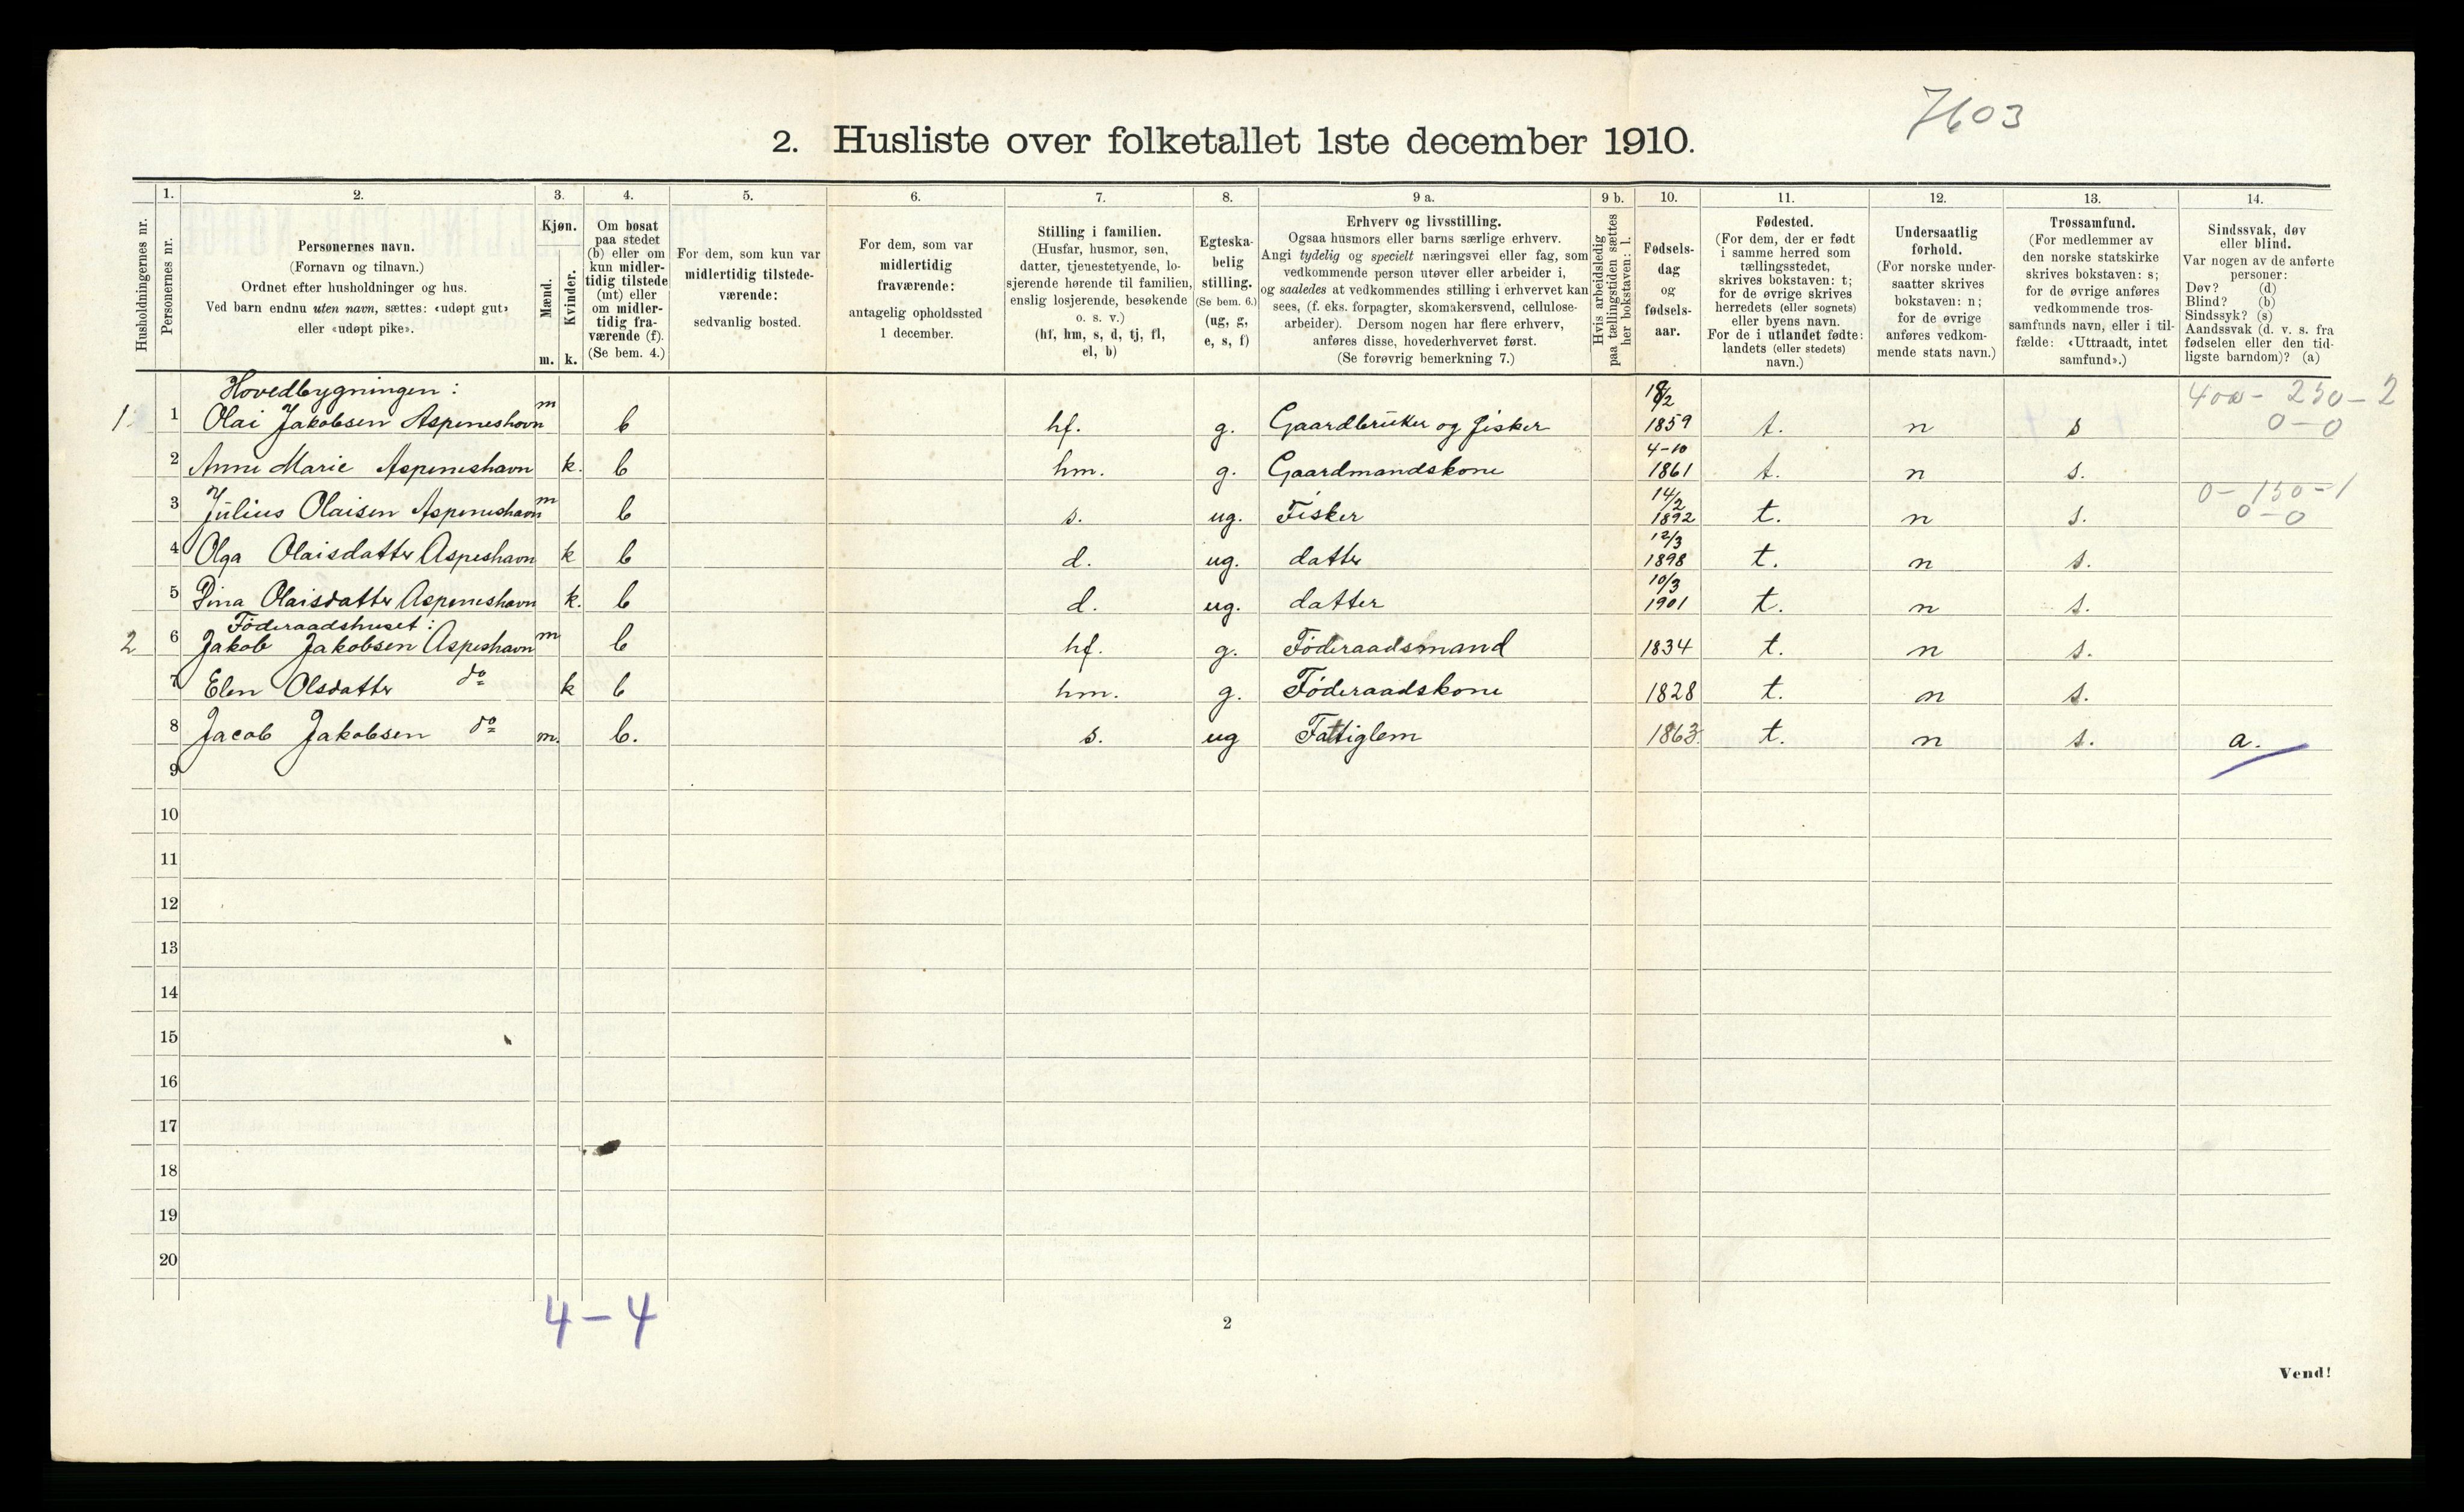 7603
2. Husliste over folketallet 1ste december 1910.
Husholdningernes nr.
1.
Personernes nr.
2.
Personernes navn.
(Fornavn og tilnavn.)
Ordnet efter husholdninger og hus.
Ved barn endnu uten navn, sættes: «udøpt gut»
eller «udøpt pike».
3.
Kjøn.
Mænd.
m.
Kvinder.
k.
4.
Om bosat
paa stedet
(b) eller om
kun midler-
tidig tilstede
(mt) eller
om midler-
tidig fra-
værende (f).
(Se bem. 4.)
5.
For dem, som kun var
midlertidig tilstede-
værende:
sedvanlig bosted.
6.
For dem, som var
midlertidig
fraværende:
antagelig opholdssted
1 december.
7.
Stilling i familien.
(Husfar, husmor, søn,
datter, tjenestetyende, lo-
sjerende hørende til familien,
enslig losjerende, besøkende
o. s. v.)
(hf, hm, s, d, tj, fl,
el, b)
8.
Egteska-
belig
stilling.
(Se bem. 6.)
(ug, g,
e, s, f)
9 a.
Erhverv og livsstilling.
Ogsaa husmors eller barns særlige erhverv.
Angi tydelig og specielt næringsvei eller fag, som
vedkommende person utøver eller arbeider i,
og saaledes at vedkommendes stilling i erhvervet kan
sees, (f. eks. forpagter, skomakersvend, cellulose-
arbeider). Dersom nogen har flere erhverv,
anføres disse, hovederhvervet først.
(Se forøvrig bemerkning 7.)
9 b.
Hvis arbeidsledig
paa tællingstiden sættes
her bokstaven: l.
10.
Fødsels-
dag
og
fødsels-
aar.
11.
Fødested.
(For dem, der er født
i samme herred som
tællingsstedet,
skrives bokstaven: t;
for de øvrige skrives
herredets (eller sognets)
eller byens navn.
For de i utlandet fødte:
landets (eller stedets)
navn.)
12.
Undersaatlig
forhold.
(For norske under-
saatter skrives
bokstaven: n;
for de øvrige
anføres vedkom-
mende stats navn.)
13.
Trossamfund.
(For medlemmer av
den norske statskirke
skrives bokstaven: s;
for de øvrige anføres
vedkommende tros-
samfunds navn, eller i til-
fælde: «Uttraadt, intet
samfund».)
14.
Sindssvak, døv
eller blind.
Var nogen av de anførte
personer:
Døv? (d)
Blind? (b)
Sindssyk? (s)
Aandssvak (d. v. s. fra
fødselen eller den tid-
ligste barndom)? (a)
Hovedbygningen:
1 1 Olai Jakobsen Aspeneshovn m b hf. g. Gaardbruker og fisker 18/2 1859 t. n s 400 - 250 - 2 0 - 0
2 Anne Marie Aspeneshavn k. b hm. g. Gaardmandskone 4-10 1861 t. n s.
3 Julius Olaisen Aspeneshavn m b s. ug. Fisker 14/2 1892 t. n s. 0 - 150 - 1 0 - 0
4 Olga Olaisdatter Aspeshavn k b d. ug. datter 12/3 1898 t. n s.
5 Dina Olaisdatter Aspeneshavn k. b d. ug. datter 10/3 1901 t. n s.
Föderaadshuset:
2 6 Jakob Jakobsen Aspeshavn m b hf. g. Föderaadsmand 1834 t. n s.
7 Elen Olsdatter do k b hm. g. Föderaadskone 1828 t. n s.
8 Jacob Jakobsen do m. b. s. ug Fattiglem 1863. t. n s. a.
9
10
11
12
13
14
15
16
17
18
19
20
4 - 4
2
Vend!